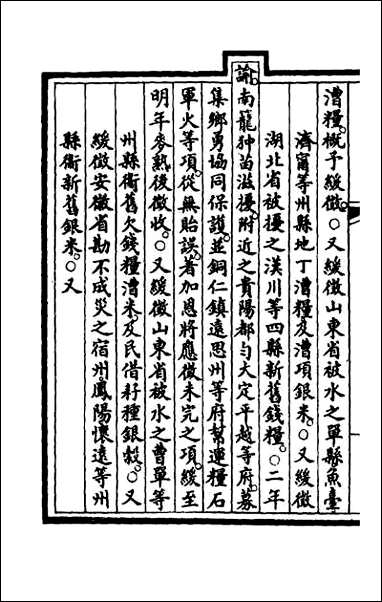 漕糧概予緩徵○又緩徵山東省被水之單縣魚臺
濟甯等州縣地丁漕糧及漕項銀米○又緩徵
湖北省被擾之漢川等四縣新舊錢糧○二年
諭南籠狆苗滋擾附近之貴陽都勻大定平越等府募
集鄉勇協同保護並銅仁鎮遠思州等府幫運糧石
軍火等項從無貽誤著加恩將應徵未完之項緩至
明年麥熟後徵收○又緩徵山東省被水之曹單等
州縣衛舊欠錢糧漕米及民借耔種銀穀○又
緩徵安徽省勘不成災之宿州鳳陽懷遠等州
縣衛新舊銀米○又